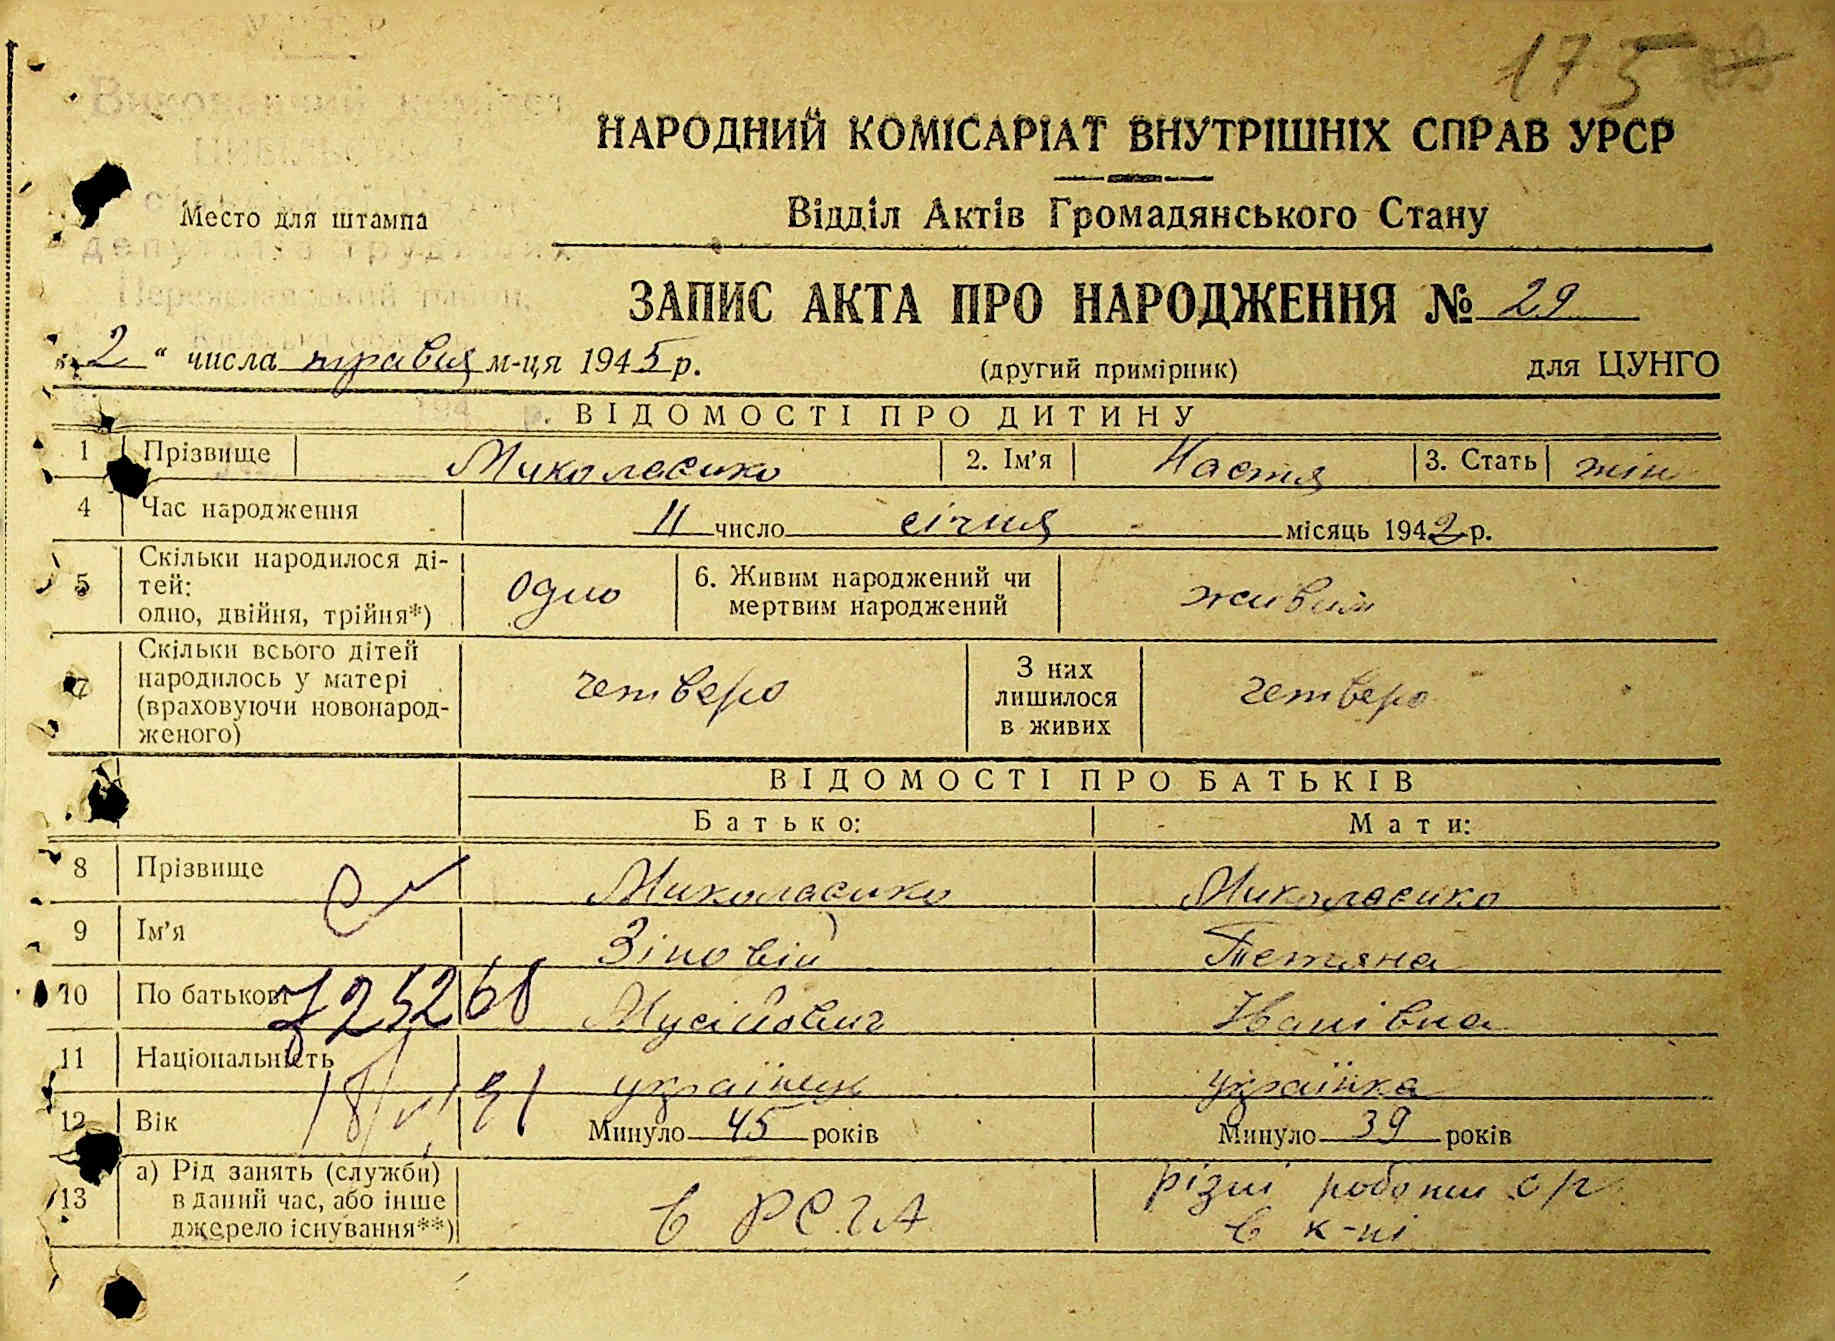 175
НАРОДНИЙ КОМІСАРІАТ ВНУТРІШНІХ СПРАВ УРСР
Виконавчий комітет
Место для штампа
Відділ Актів Громадянського Стану
депутатів трудящих
Переяславський район,
ЗАПИС АКТА ПРО НАРОДЖЕННЯ № 29
„2“ числа травня м-ця 1945 р. (другий примірник) для ЦУНГО
194 р.
ВІДОМОСТІ ПРО ДИТИНУ
1 Прізвище Миколаєнко 2. Ім'я Настя 3. Стать жін
4 Час народження 11 число січня місяць 1942 р.
5 Скільки народилося ді-
тей:
одно, двійня, трійня*) Одно 6. Живим народжений чи
мертвим народжений живим
7 Скільки всього дітей
народилось у матері
(враховуючи новонарод-
женого) четверо З них
лишилося
в живих четверо
ВІДОМОСТІ ПРО БАТЬКІВ
Батько: Мати:
8 Прізвище Миколаєнко Миколаєнко
9 Ім'я Зіновій Тетяна
10 По батькові Мусійович Іванівна
11 Національність українець українка
12 Вік Минуло 45 років Минуло 39 років
13 а) Рід занять (служби)
в даний час, або інше
джерело існування**) в РСЧА різні роботи с/г
в к-пі